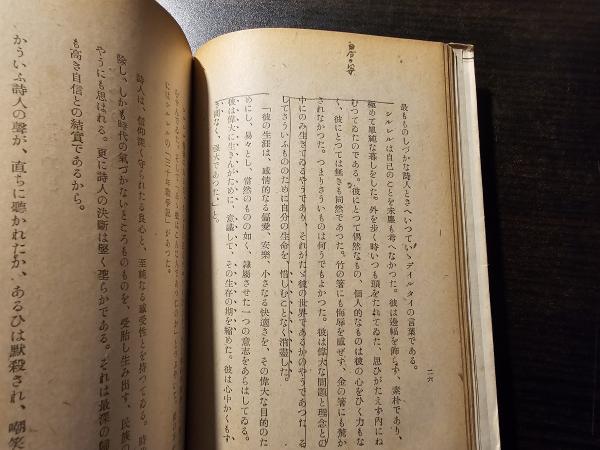 二六
最ものしづかな詩人とさへいつていゝデイルタイの言葉である。
シルレルは自己のことを末塵も希へなかつた。彼は邊幅を飾らず、素朴であり、
極めて單純な暮しをした。外を歩く時いつも頭をたれてゐた。思ひがたえず内にね
むつてゐたのである。彼にとつて偶然なもの、個人的なものは彼の心をひく力もな
く、彼にとつては無きも同然であつた。竹の箸にも侮辱を感ぜず、金の箸にも驚か
されなかつた。つまりさういふものは何うでもよかつた。彼は偉大な問題と理念との
中にのみ生きてゐるやうであり、それがたゞ彼の世界であるかのやうであつた。
してさういふもののために自分の生命を、惜しむことなく消盡した。
「彼の生涯は、感情的なる偏愛、安樂、小さなる快適さを、その偉大な目的のた
めにし、易々とし、當然のものの如く、隷屬させた一つの意志をあらはしてゐる。
彼は偉大に生きんがために、意識して、その生存の期を縮めた。彼は心中かくも
間なく、强大であつた」と。
詩人は、信仰深く守られたる良心と、至純なる感受性とを持つてゐる。
除し、しかも時代の氣づかないところのものを、受胎し生み出す、民族の
やうにも思はれる。更に詩人の決斷は堅く聖らかである。それは最深の
も高き自信との結實であるから。
かういふ詩人の聲が、直ちに聽かれたか、あるひは默殺され、嘲笑